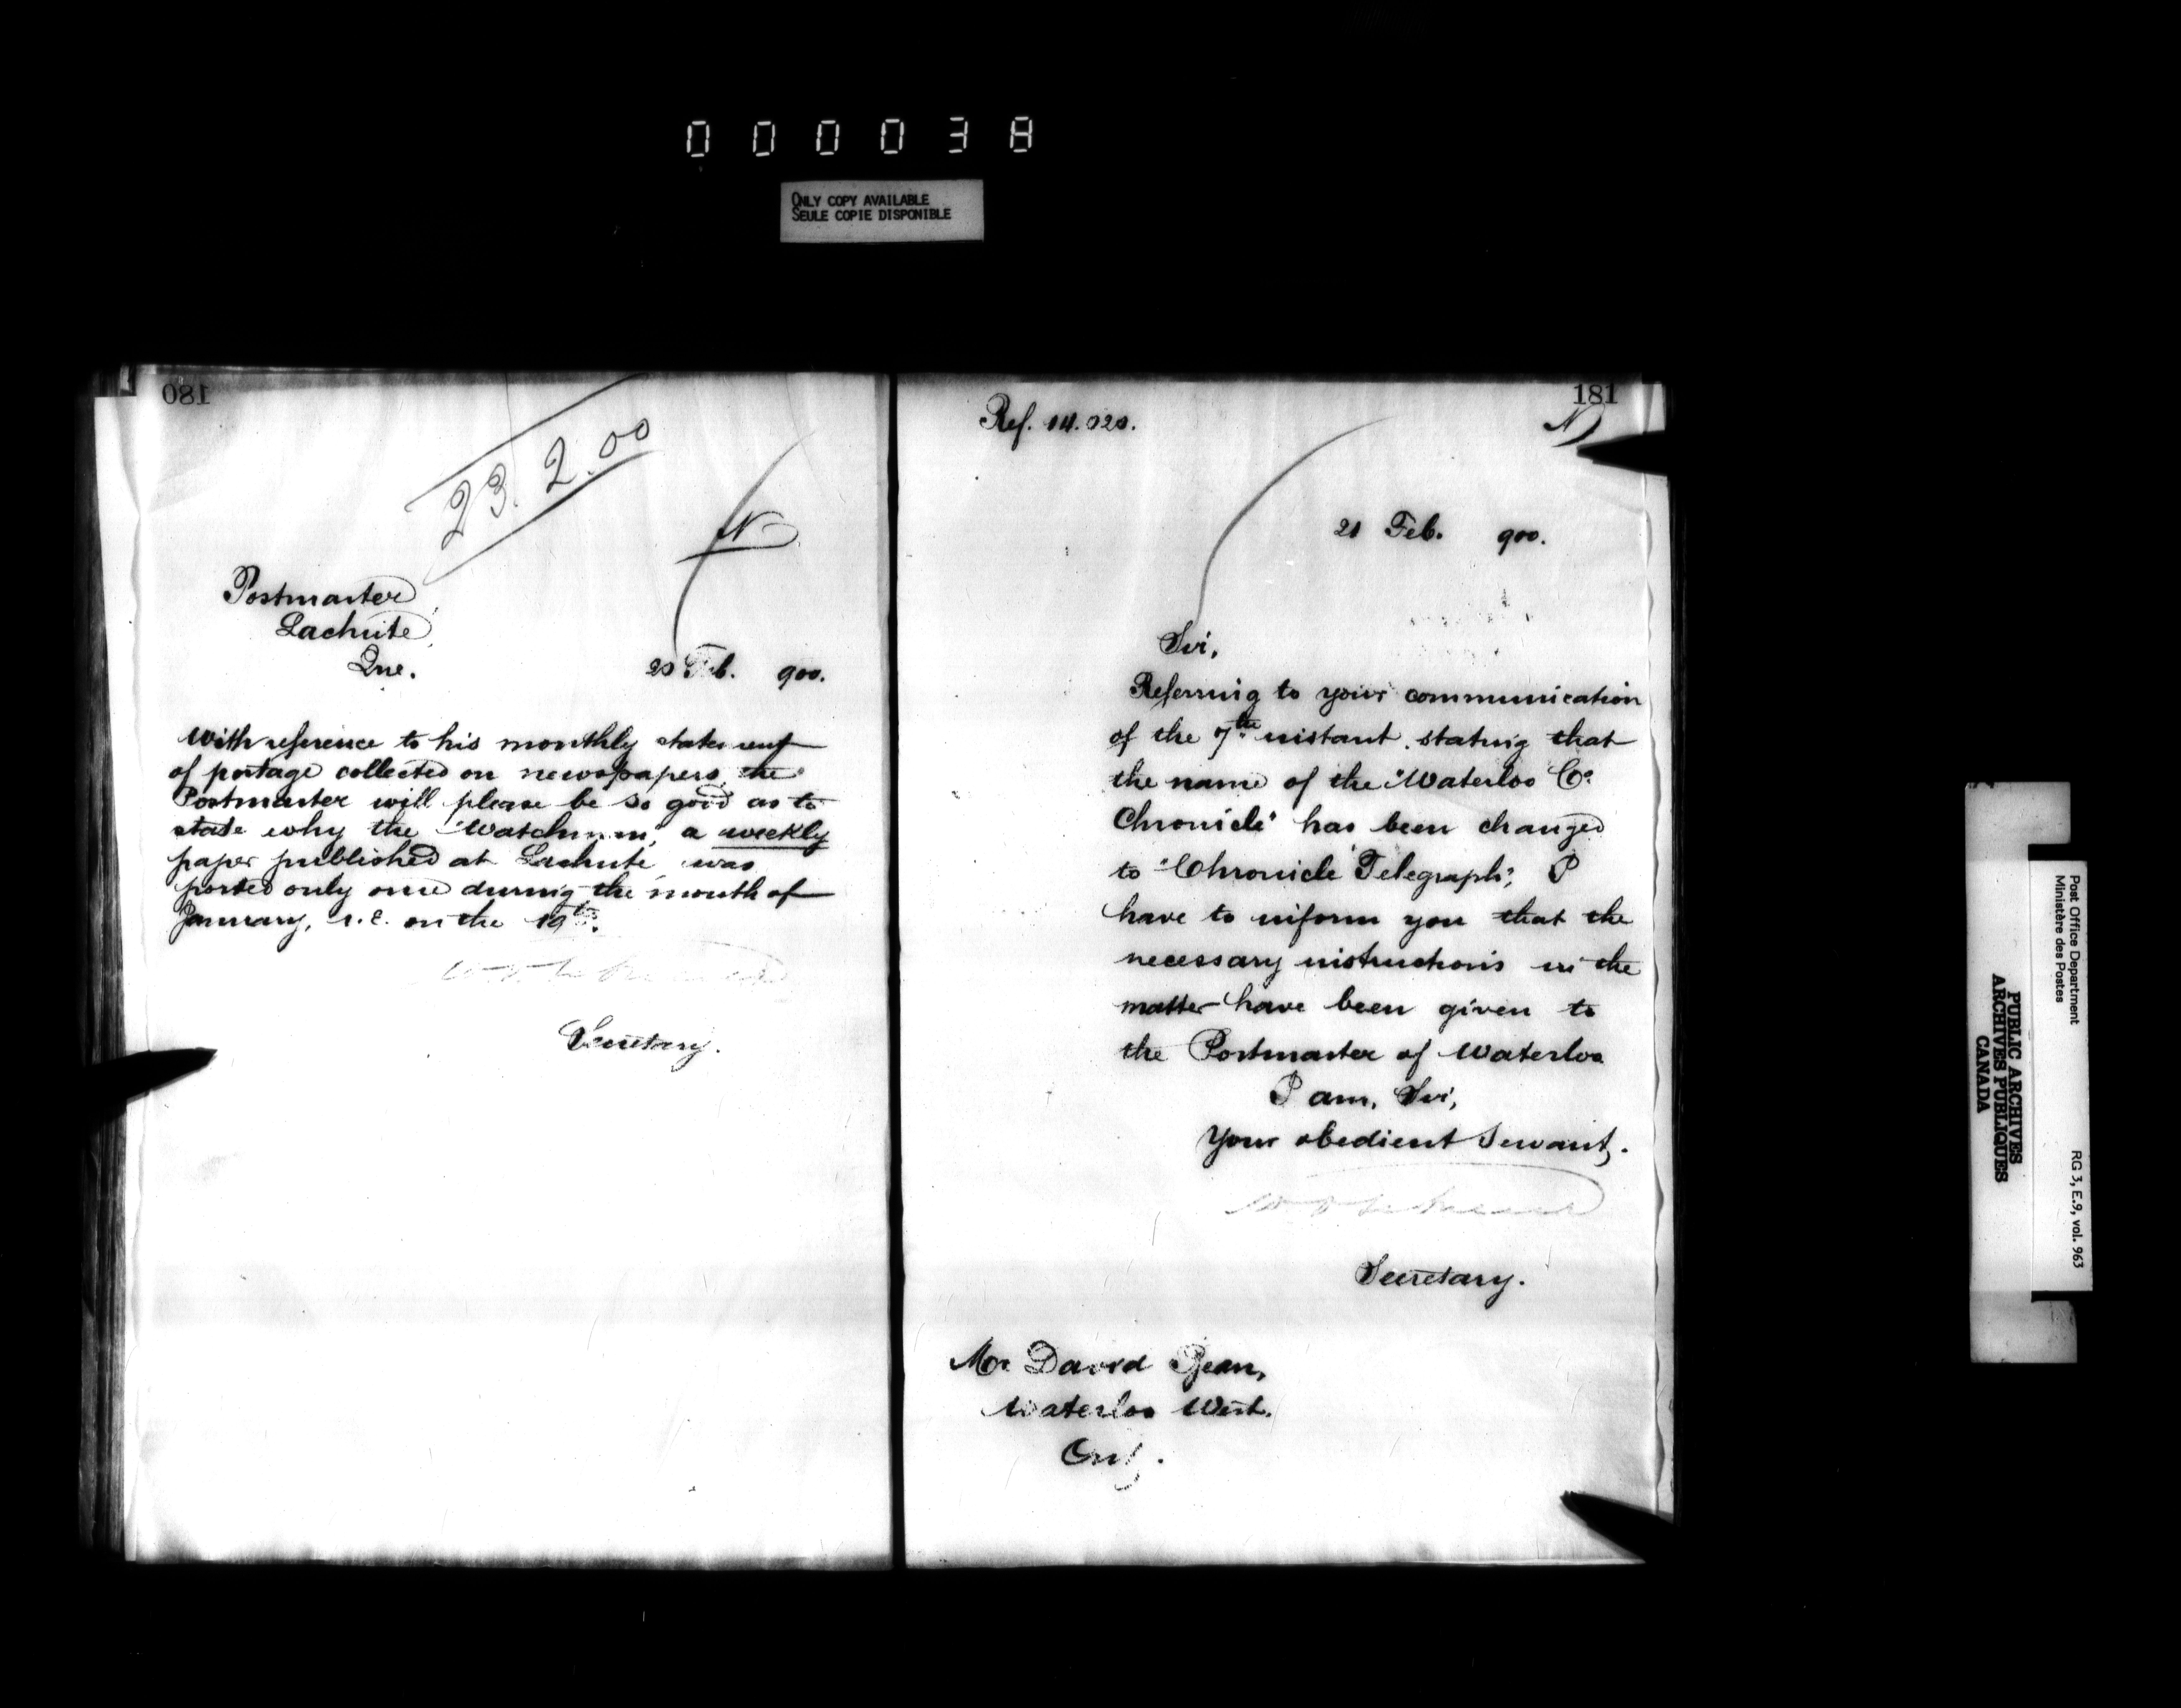 000038
ONLY COPY AVAILABLE
SEULE COPIE DISPONIBLE
180
23.2.00
N
Postmaster
Lachute
Que.
20 Feb. 900.
With reference to his monthly statement
of postage collected on newspapers, the
Postmaster will please be so good as to
state why the "Watchman", a weekly
paper published at Lachute, was
posted only once during the month of
January, i.e. on the 19th.
Secretary.
181
Ref. 14.020.
N
21 Feb. 900.
Sir,
Referring to your communication
of the 7th instant, stating that
the name of the "Waterloo Co.
Chronicle" has been changed
to "Chronicle Telegraph", I
have to inform you that the
necessary instructions in the
matter have been given to
the Postmaster of Waterloo
I am, Sir,
Your obedient Servant,
Secretary.
Mr David Bean,
Waterloo West.
Ont.
Post Office Department
Ministère des Postes
RG 3, E.9, vol. 963
PUBLIC ARCHIVES
ARCHIVES PUBLIQUES
CANADA